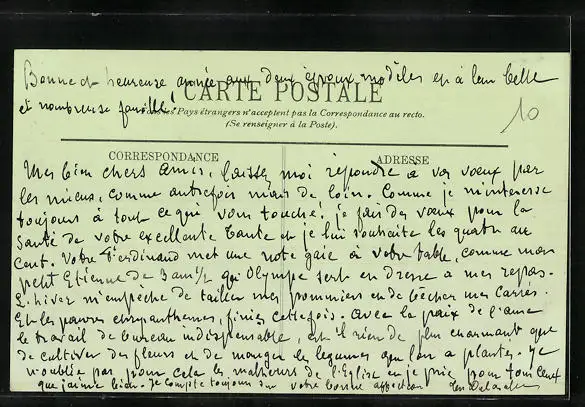 Bonne et heureuse année aux deux époux modèles et à leur belle
et nombreuse famille.
CARTE POSTALE
les Pays étrangers n'acceptent pas la Correspondance au recto.
(Se renseigner à la Poste).
10
CORRESPONDANCE
ADRESSE
Mes bien chers Amis, laissez moi répondre à vos voeux par
les miens, comme autrefois mais de loin. Comme je m'intéresse
toujours à tout ce qui vous touche! je fais des voeux pour la
Santé de votre excellente tante et je lui souhaite les quatre au
Cent. Votre Ferdinand met une note gaie à votre table, comme mon
petit Etienne de 3 ans 1/2 qu'Olympe sert en à mes repas.
L'hiver m'empêche de tailler mes pommiers et de bêcher mes Carrés.
Et les pauvres chrysanthèmes, finies cette fois. Avec la paix de l'âme
le travail de bureau indispensable, est il rien de plus charmant que
de cultiver des fleurs et de manger les légumes que l'on a plantés. Je
n'oublie pas pour cela les malheurs de l'Eglise et je prie pour tous ceux
que j'aime bien. Je compte toujours sur votre bonne affection